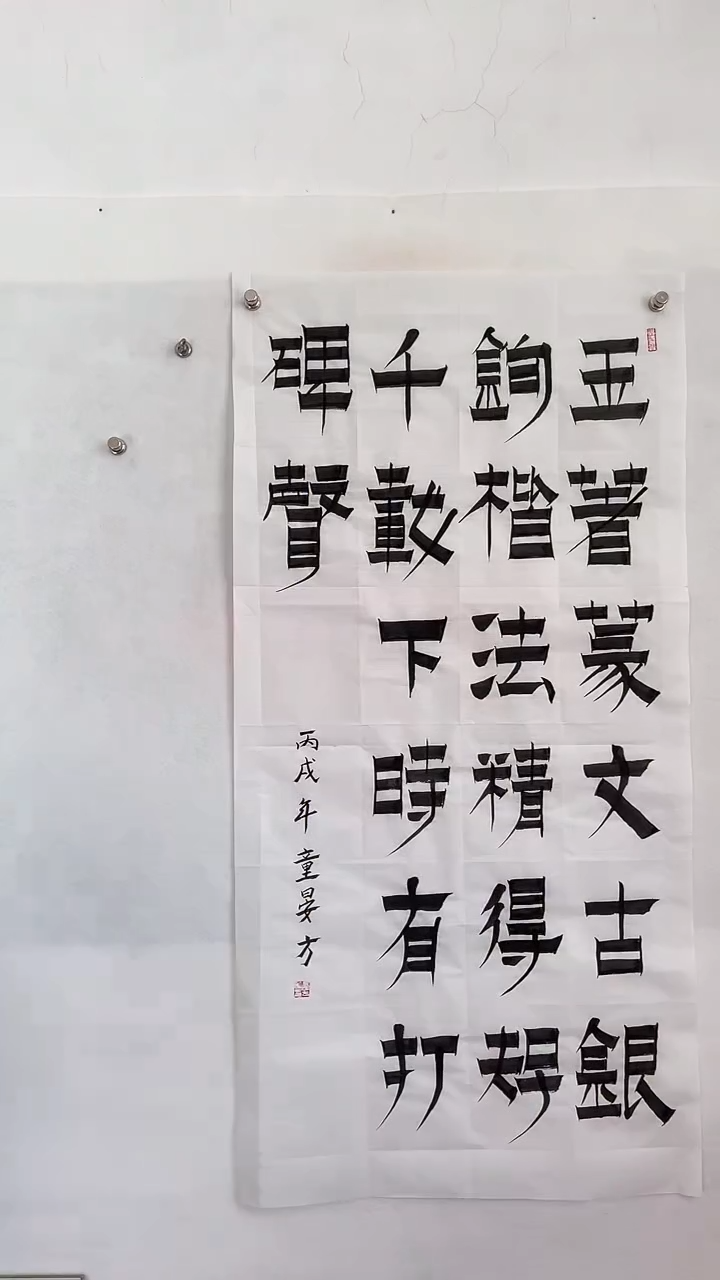 玉著篆文古銀
鉤楷法精得
千載下時有打
碑聲
丙戌年童晏方